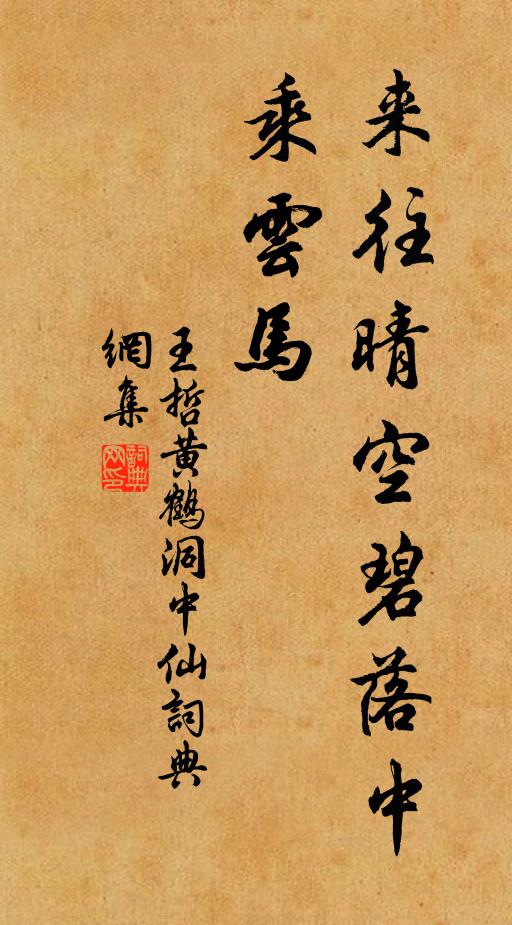 来往晴空碧落中
乘雲馬
王哲黄鶴洞中仙詞典
網集
詞典
网印